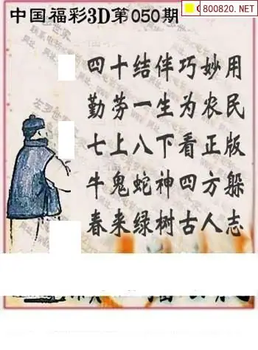 中国福彩3D第050期
C800820.NET
四十结伴巧妙用
勤劳一生为农民
七上八下看正版
牛鬼蛇神四方躲
春来绿树古人志